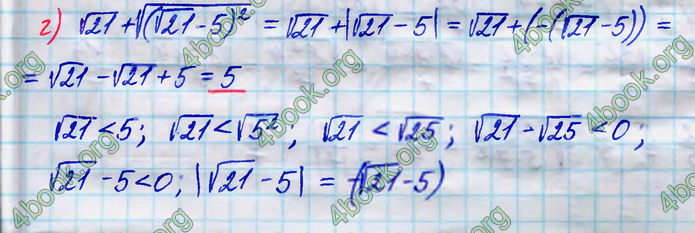 г) √21 + √(√21 - 5)² = √21 + |√21 - 5| = √21 + (-(√21 - 5)) =
= √21 - √21 + 5 = 5
√21 < 5; √21 < √5²; √21 < √25; √21 - √25 < 0;
√21 - 5 < 0; |√21 - 5| = -(√21 - 5)
4book.org
4book.org
4book.org
4book.org
4book.org
4book.org
4book.org